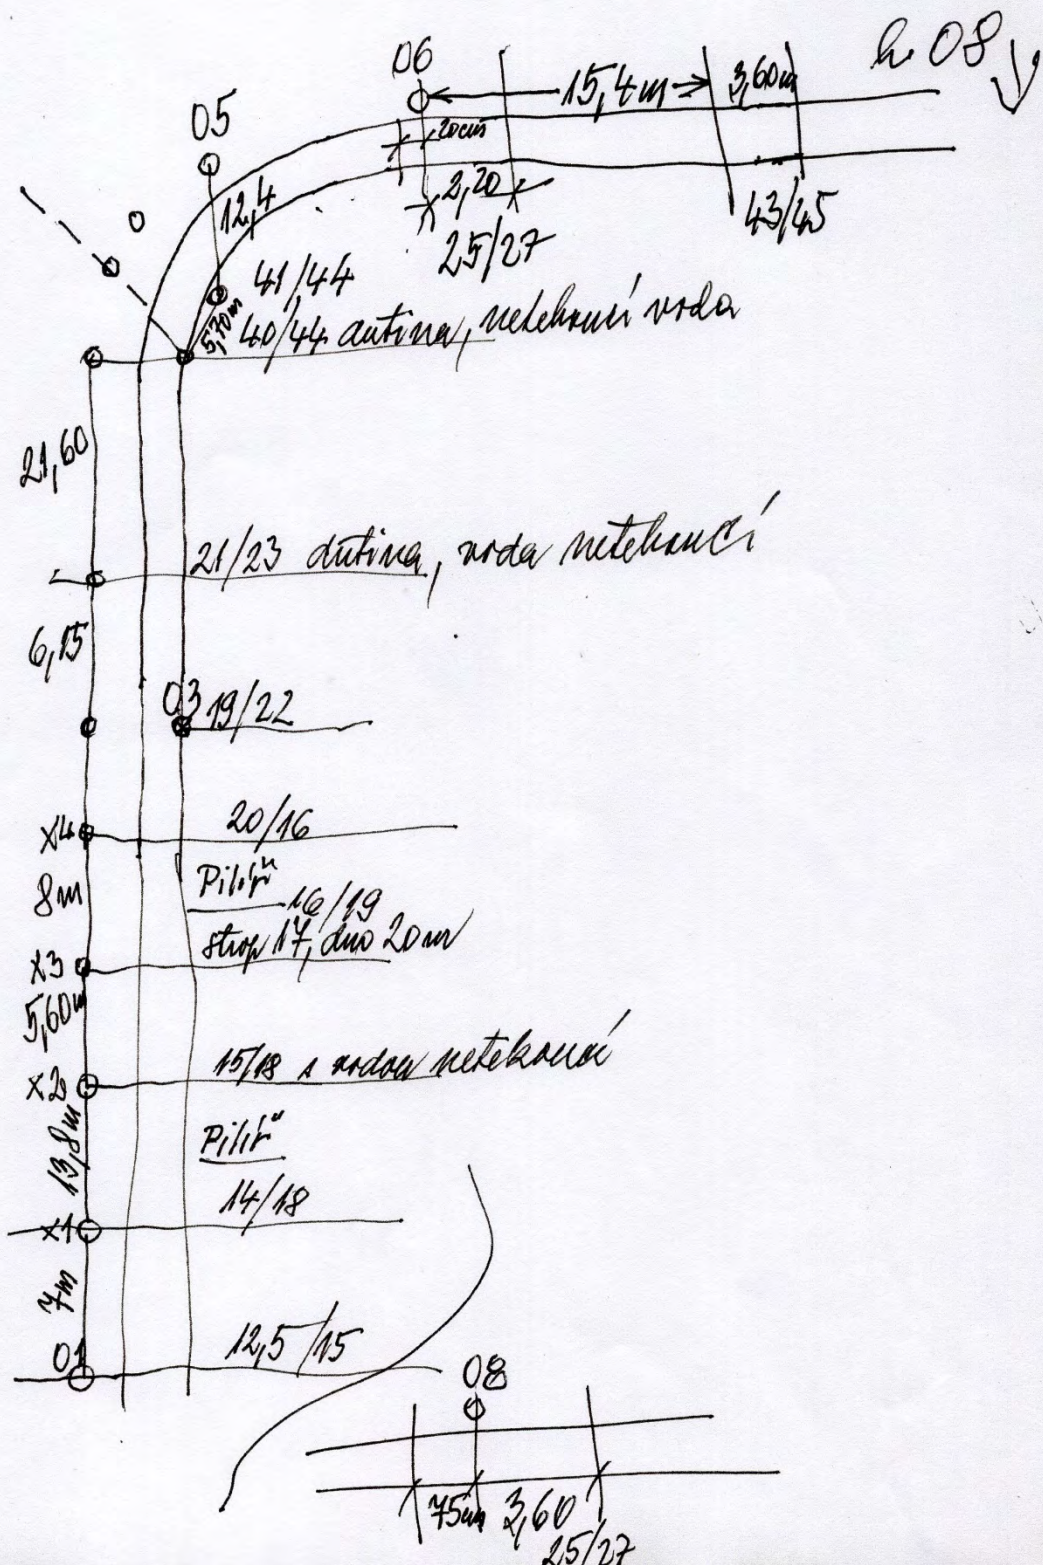 k 08
06
15,4m
3,60m
05
20cm
12,4
2,20
25/27
43/45
41/44
5,70m
40/44 dutina, netekoucí voda
21,60
21/23 dutina, voda netekoucí
6,15
03 19/22
20/16
X4
8m
Pilíř
16/19
strop 17, dno 20m
X3
5,60m
15/18 s vodou netekoucí
X2
13,8m
Pilíř
14/18
X1
7m
12,5/15
01
08
75cm 3,60
25/27